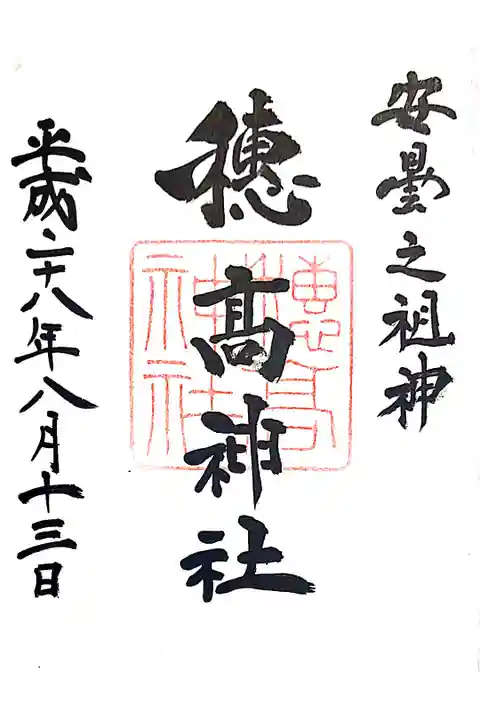 安曇之祖神
穂髙神社
平成二十八年八月十三日
穂高神社